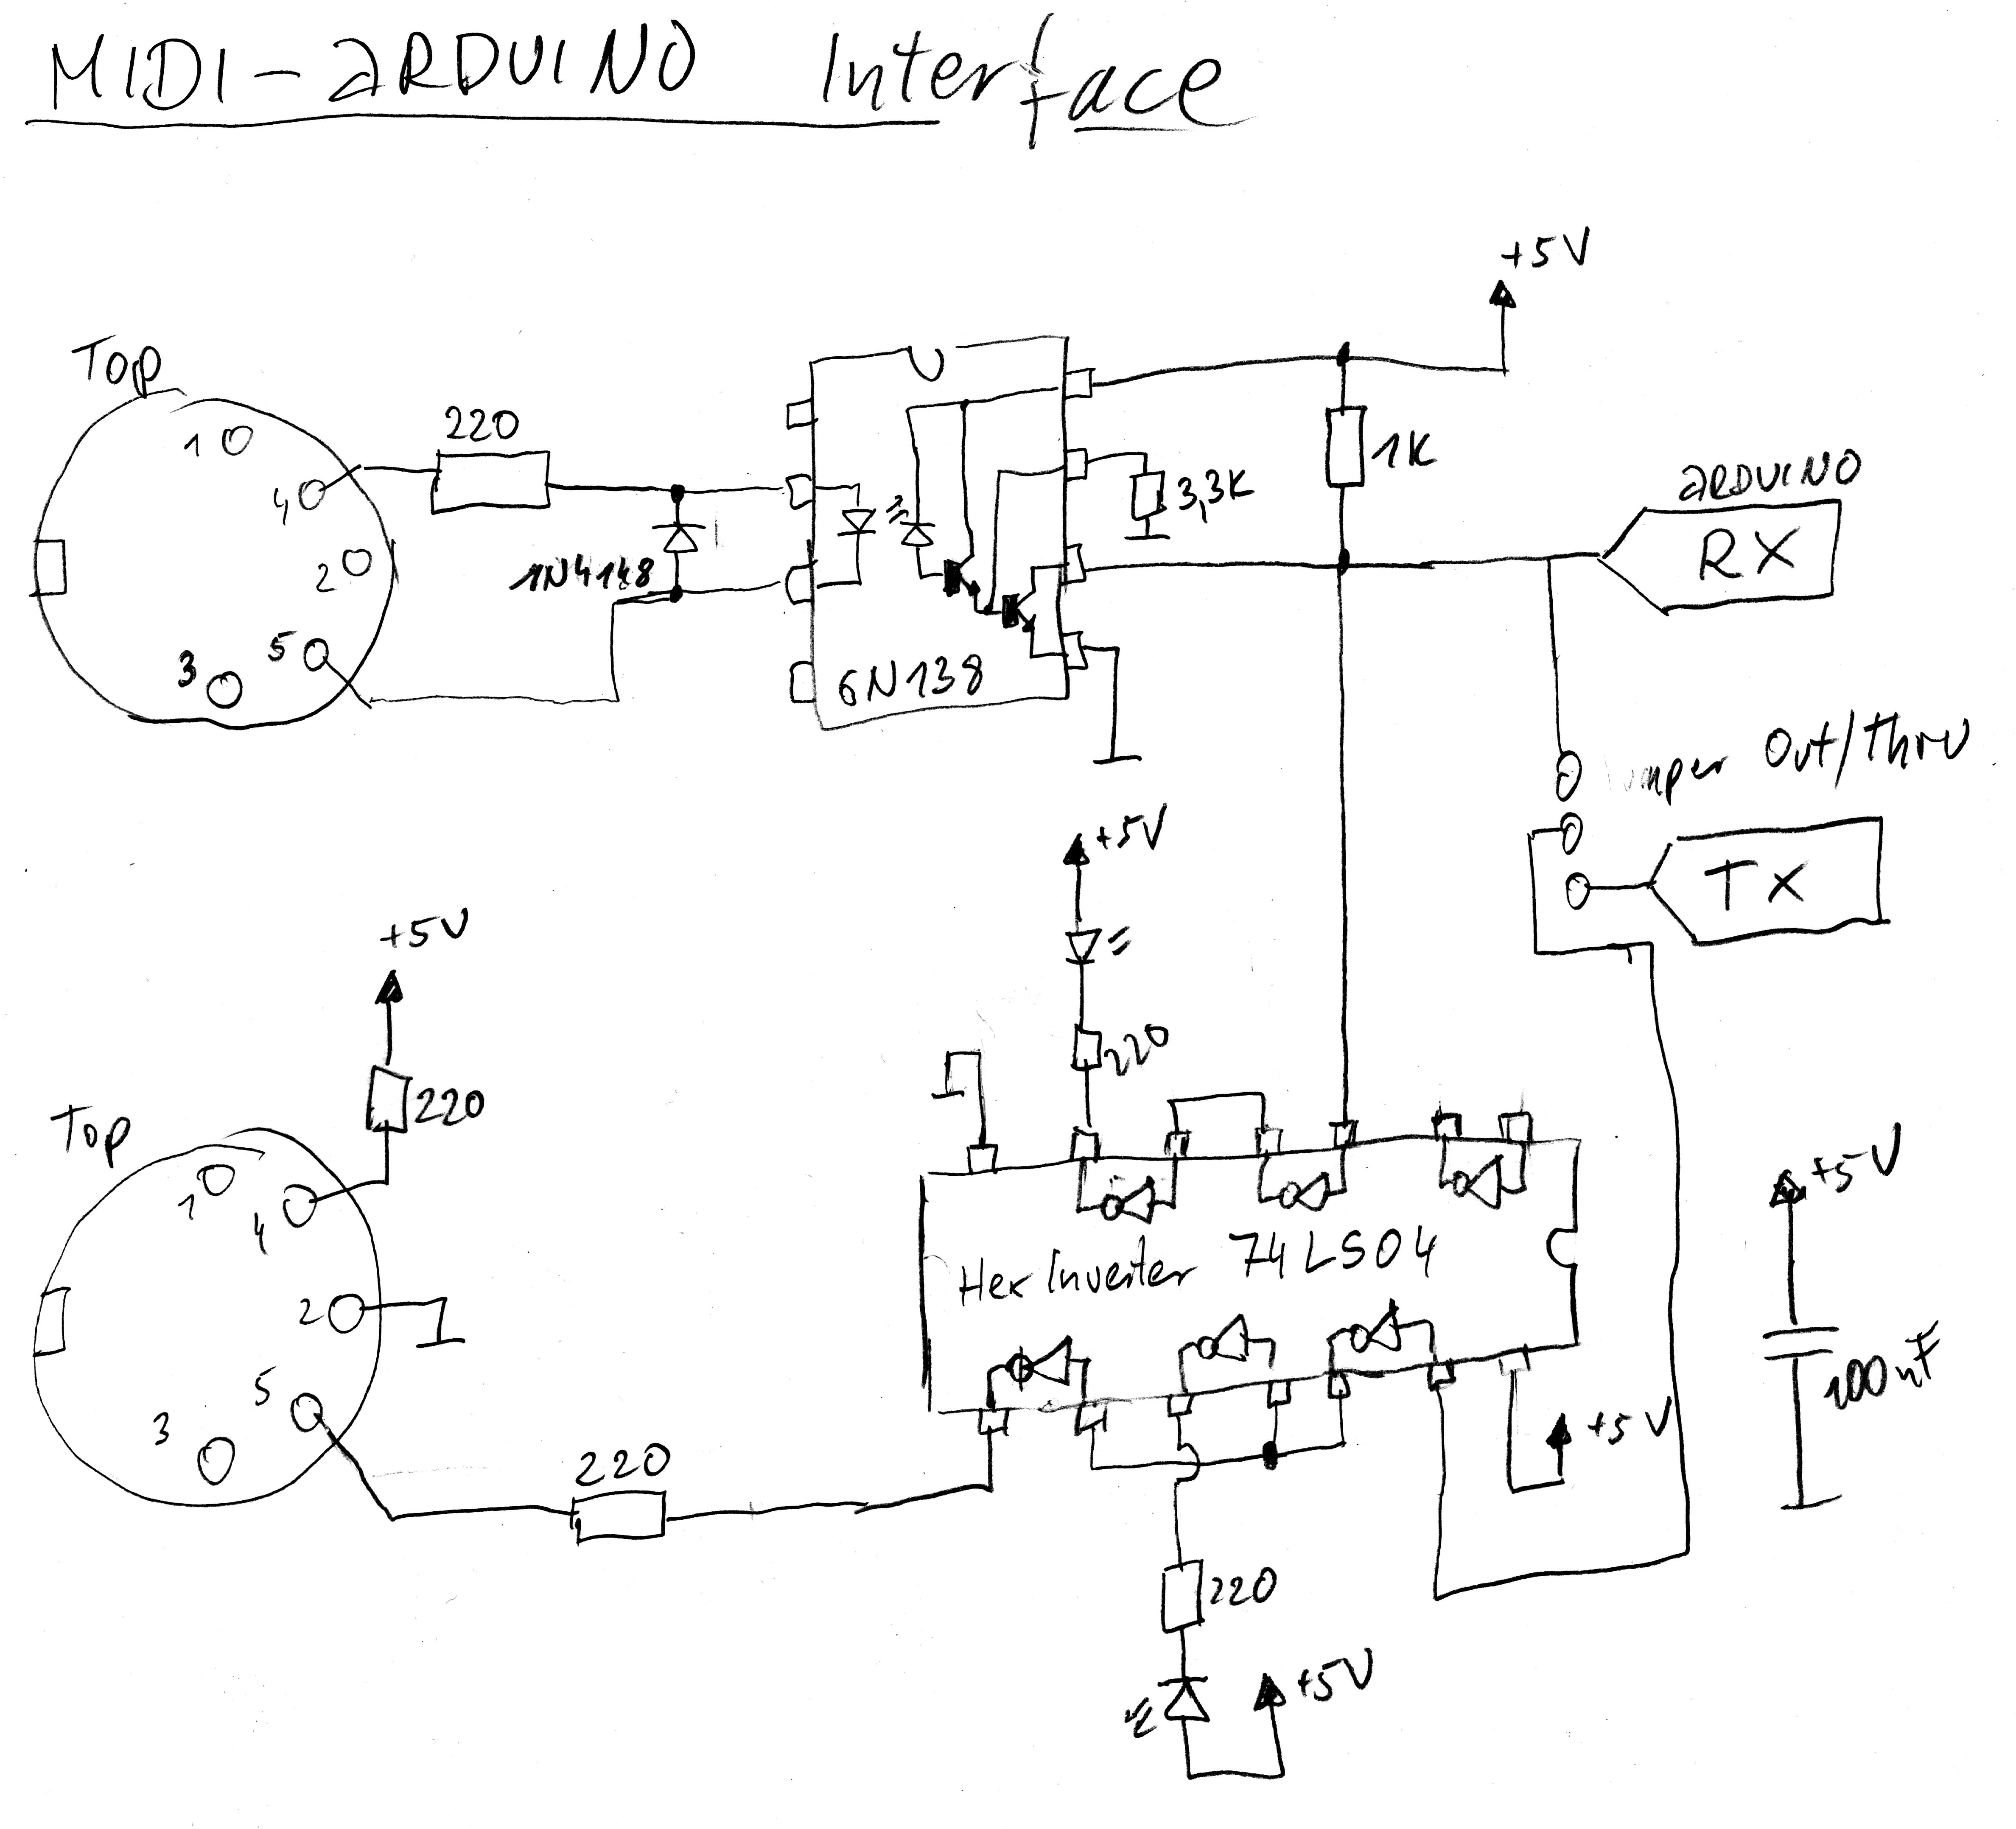 MIDI-ARDUINO Interface
+5V
Top
1
220
4
1K
ARDUINO
3,3K
RX
2
1N4148
5
3
6N138
Out/thru
+5V
TX
+5V
220
220
Top
1
4
+5V
Hex Inverter 74LS04
2
100nF
5
+5V
3
220
220
+5V